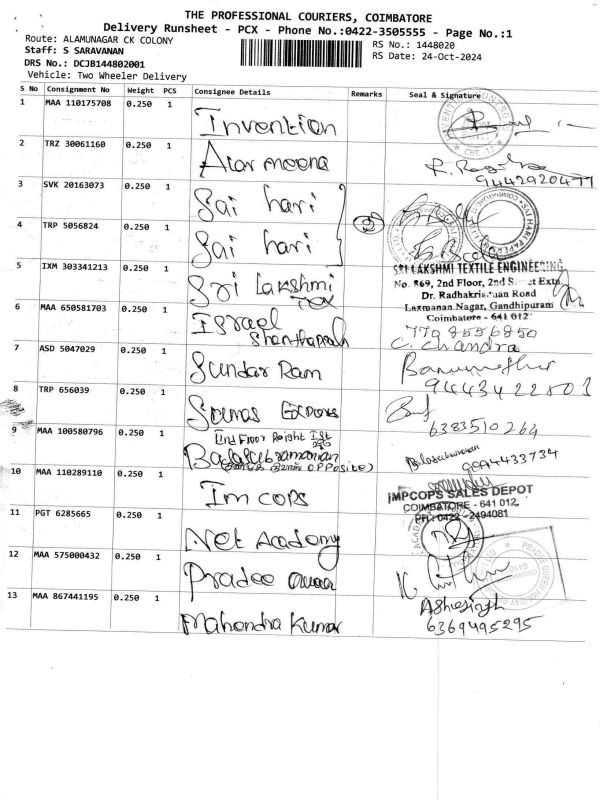 THE PROFESSIONAL COURIERS, COIMBATORE
Delivery Runsheet - PCX - Phone No.:0422-3505555 - Page No.:1
Route: ALAMUNAGAR CK COLONY
Staff: S SARAVANAN
DRS No.: DCJB144802001
Vehicle: Two Wheeler Delivery
RS No.: 1448020
RS Date: 24-Oct-2024
S No Consignment No Weight PCS Consignee Details Remarks Seal & Signature
1 MAA 110175708 0.250 1 Invention
2 TRZ 30061160 0.250 1 Alar meena
9442920477
3 SVK 20163073 0.250 1 Sai hari
4 TRP 5056824 0.250 1 Sai hari
5 IXM 303341213 0.250 1 Sri Lakshmi
Tex
SRI LAKSHMI TEXTILE ENGINEERING
No. 869, 2nd Floor, 2nd Street Extn
Dr. Radhakrishnan Road
Laxmanan Nagar, Gandhipuram
Coimbatore - 641 012
6 MAA 650581703 0.250 1 Israel
Shanthappah
7798556850
C. Chandra
7 ASD 5047029 0.250 1 Sundar Ram
8 TRP 656039 0.250 1
6383510264
9 MAA 100580796 0.250 1 IInd Floor Reight Ist
Balasubramanian
opposite)
Balasubramanian
9094433734
10 MAA 110289110 0.250 1 Im cops
IMPCOPS SALES DEPOT
COIMBATORE - 641 012.
PH: 0422 - 2494081
11 PGT 6285665 0.250 1 Net Academy
12 MAA 575000432 0.250 1 Pradee
13 MAA 867441195 0.250 1 Mahendra Kumar
6369495295